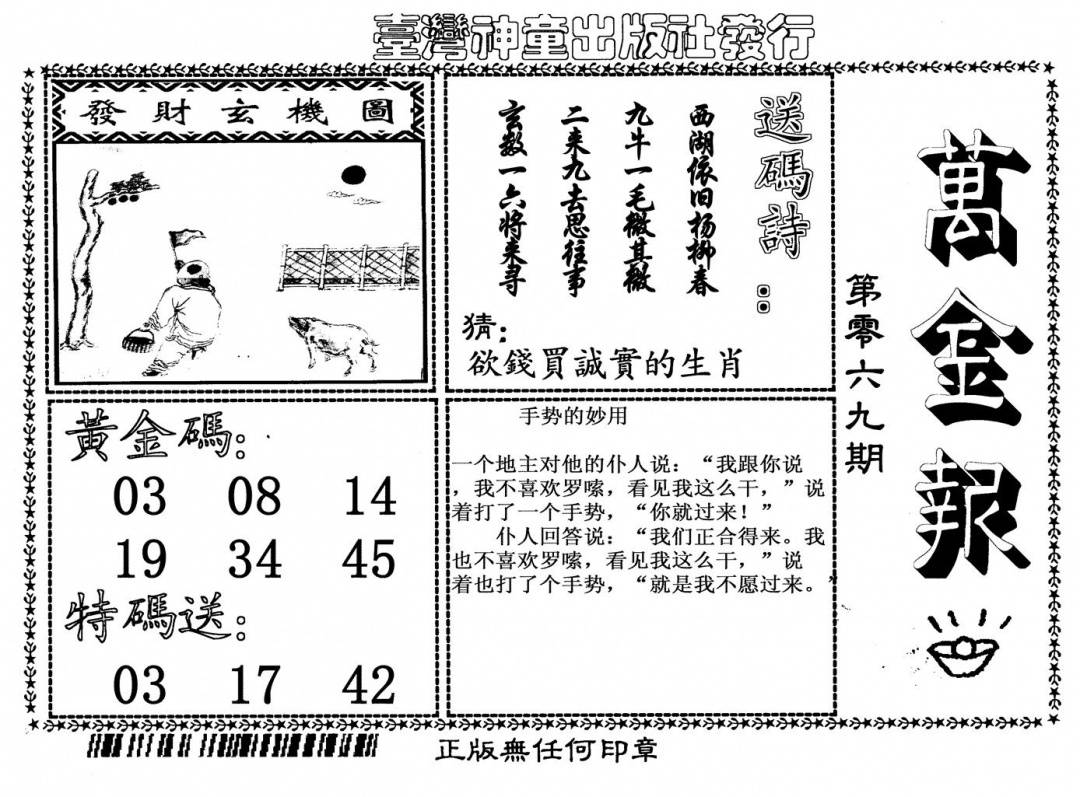 臺灣神童出版社發行
萬金報
第零六九期
發財玄機圖
送碼詩：
西湖依旧杨柳春
九牛一毛微其微
二来九去思往事
玄数一六将来寻
猜：
欲錢買誠實的生肖
黃金碼：
03 08 14
19 34 45
特碼送：
03 17 42
手势的妙用
一个地主对他的仆人说：“我跟你说
，我不喜欢罗嗦，看见我这么干，”说
着打了一个手势，“你就过来！”
仆人回答说：“我们正合得来。我
也不喜欢罗嗦，看见我这么干，”说
着也打了个手势，“就是我不愿过来。”
正版無任何印章